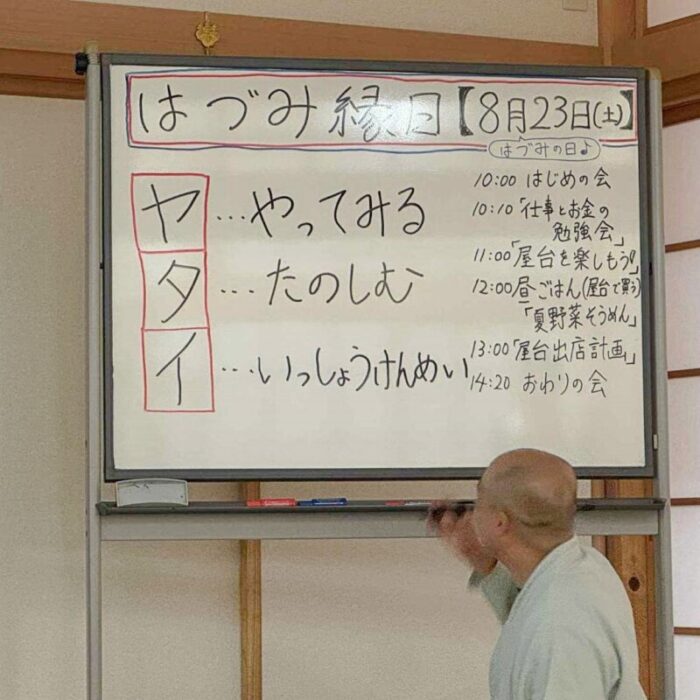 はづみ縁日【8月23日(土)】
はづみの日♪
ヤ…やってみる
タ…たのしむ
イ…いっしょうけんめい
10:00 はじめの会
10:10「仕事とお金の
勉強会」
11:00「屋台を楽しもう!」
12:00 昼ごはん(屋台で買う)
「夏野菜そうめん」
13:00「屋台出店計画」
14:20 おわりの会